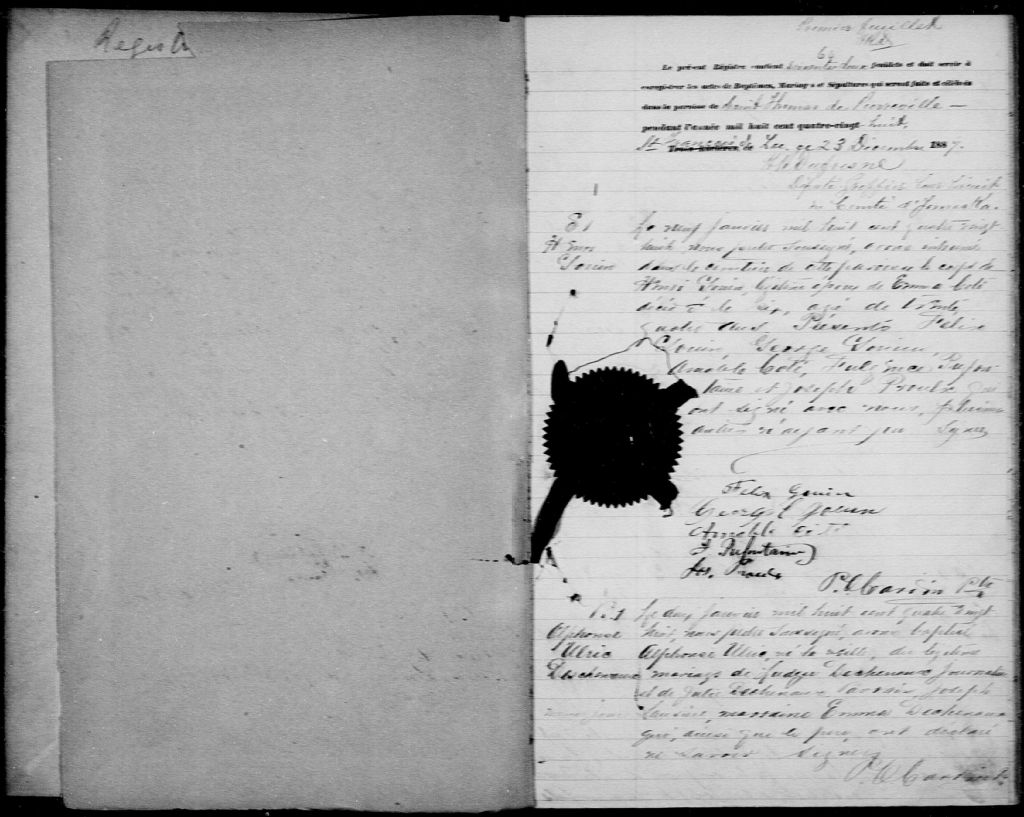 Registre
Premier feuillet
62
Le présent Régistre contient soixante deux feuillets et doit servir à
enregistrer les actes de Baptêmes, Mariages et Sépultures qui seront faits et célébrés
dans la paroisse de Saint Thomas de Pierreville
pendant l'année mil huit cent quatre-vingt huit.
St François du Lac, ce 23 Décembre 1887.
Dufresne
Député Greffier Cour
Comté d'Yamaska.
Le neuf janvier mil huit cent quatre vingt
huit, nous prêtre soussigné, avons inhumé
dans le cimetière de cette paroisse le corps de
Henri Gouin, époux de Emma Coté
décédé le six, agé de trente
quatre ans. Présents Félix
Gouin, George Gouin,
Amable Coté,
et Joseph Proulx qui
ont signé avec nous,
autres n'ayant pu signer
S 1
Henri
Gouin
Felix Gouin
George Gouin
Amable Coté
Jos. Proulx
P. O. Cardin Ptre
B. 1
Alphonse
Ulric
Deschenaux
Le dix janvier mil huit cent quatre vingt
huit, nous prêtre soussigné, avons baptisé
Alphonse Ulric, né la veille, du légitime
mariage de Deschenaux journalier
et de Julie Deschenaux. Parrain, Joseph
marraine Emma Deschenaux
qui, ainsi que le père, ont déclaré
ne savoir signer
P. O. Cardin Ptre